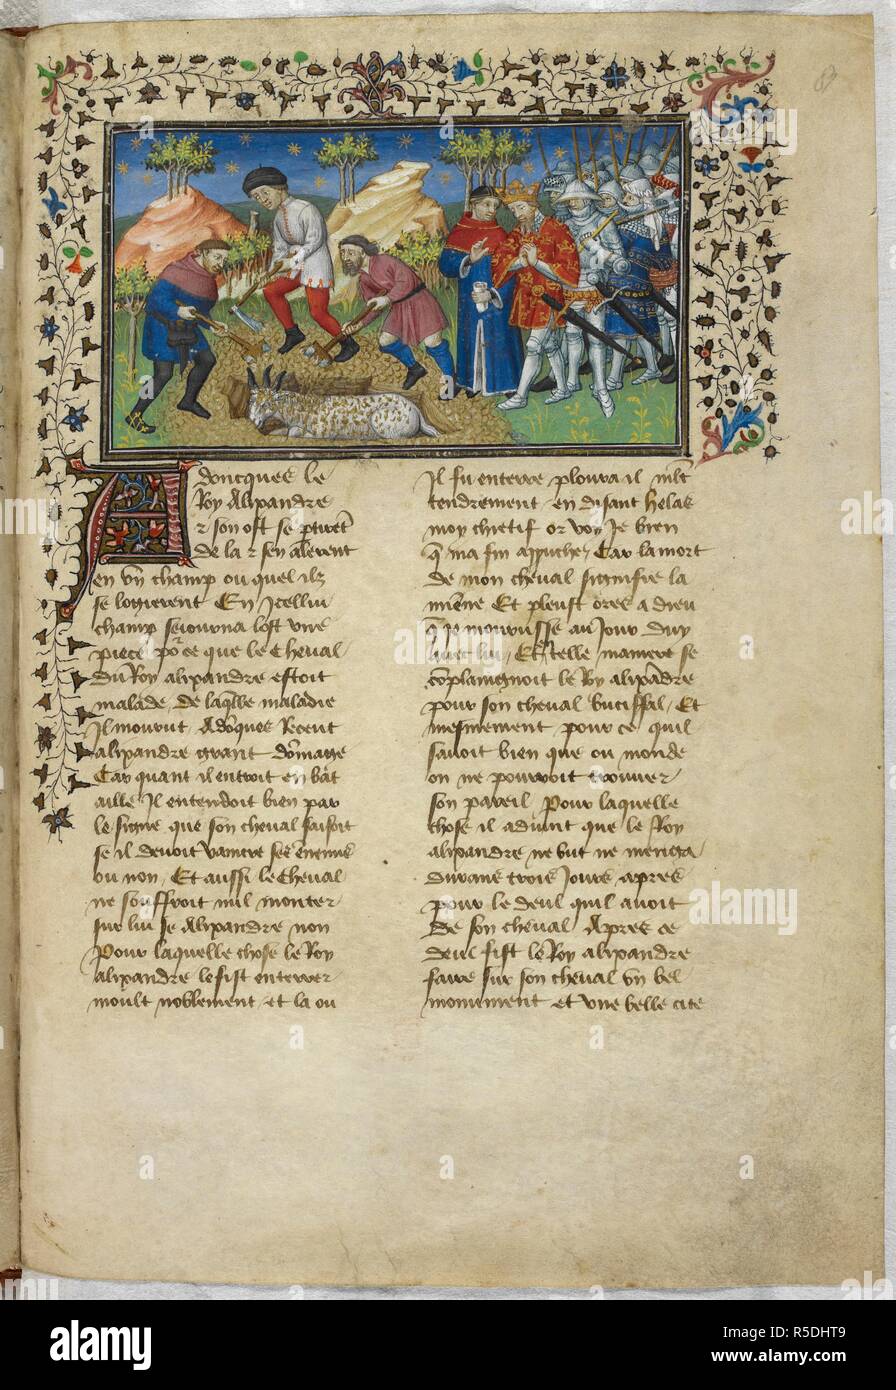 Adoncques le
Roy Alixandre
⁊ son ost se ptiret
de la ⁊ sen alerent
en vng champ ou quel ilz
se logierent En Icellui
champ seiourna lost vne
piece po᷑ ce que le cheval
du Roy alixandre estoit
malade, de laqlle maladie
Il mourut Adoques Recent
alixandre grant domage
Car quant il entroit en bat
aille Il entendoit bien par
le signe que son cheval faisoit
se il devoit vaincre ses enemis
ou non, Et aussi le cheval
ne souffroit nul monter
sur lui se Alixandre non
Pour laquelle chose le Roy
alixandre le fist enterrer
moult noblement et la ou
Il fu enterre ploura il mlt
tendrement en disant helas
moy chetif or voy Je bien
q ma fin approche, Car la mort
de mon cheval signifie la
miene Et pleust ores a dieu
q Je mourusse au Jour duy
avec lui, Et telle maniere se
coplaingnoit le Roy alixadre
pour son cheval buciffal, Et
mesmement pour ce quil
savoit bien que ou monde
on ne pourroit trouver
son pareil Pour laquelle
chose il advint que le Roy
alixandre ne but ne menga
durant trois Jours apres
pour le deul quil avoit
de son cheval Apres ce
deul fist le Roy alixandre
faire sur son cheval vn bel
monument et vne belle cite
alamy
Image ID: R5DHT9
www.alamy.com